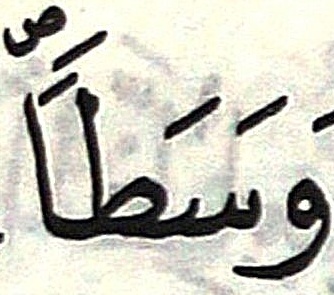 وَسَطاًص